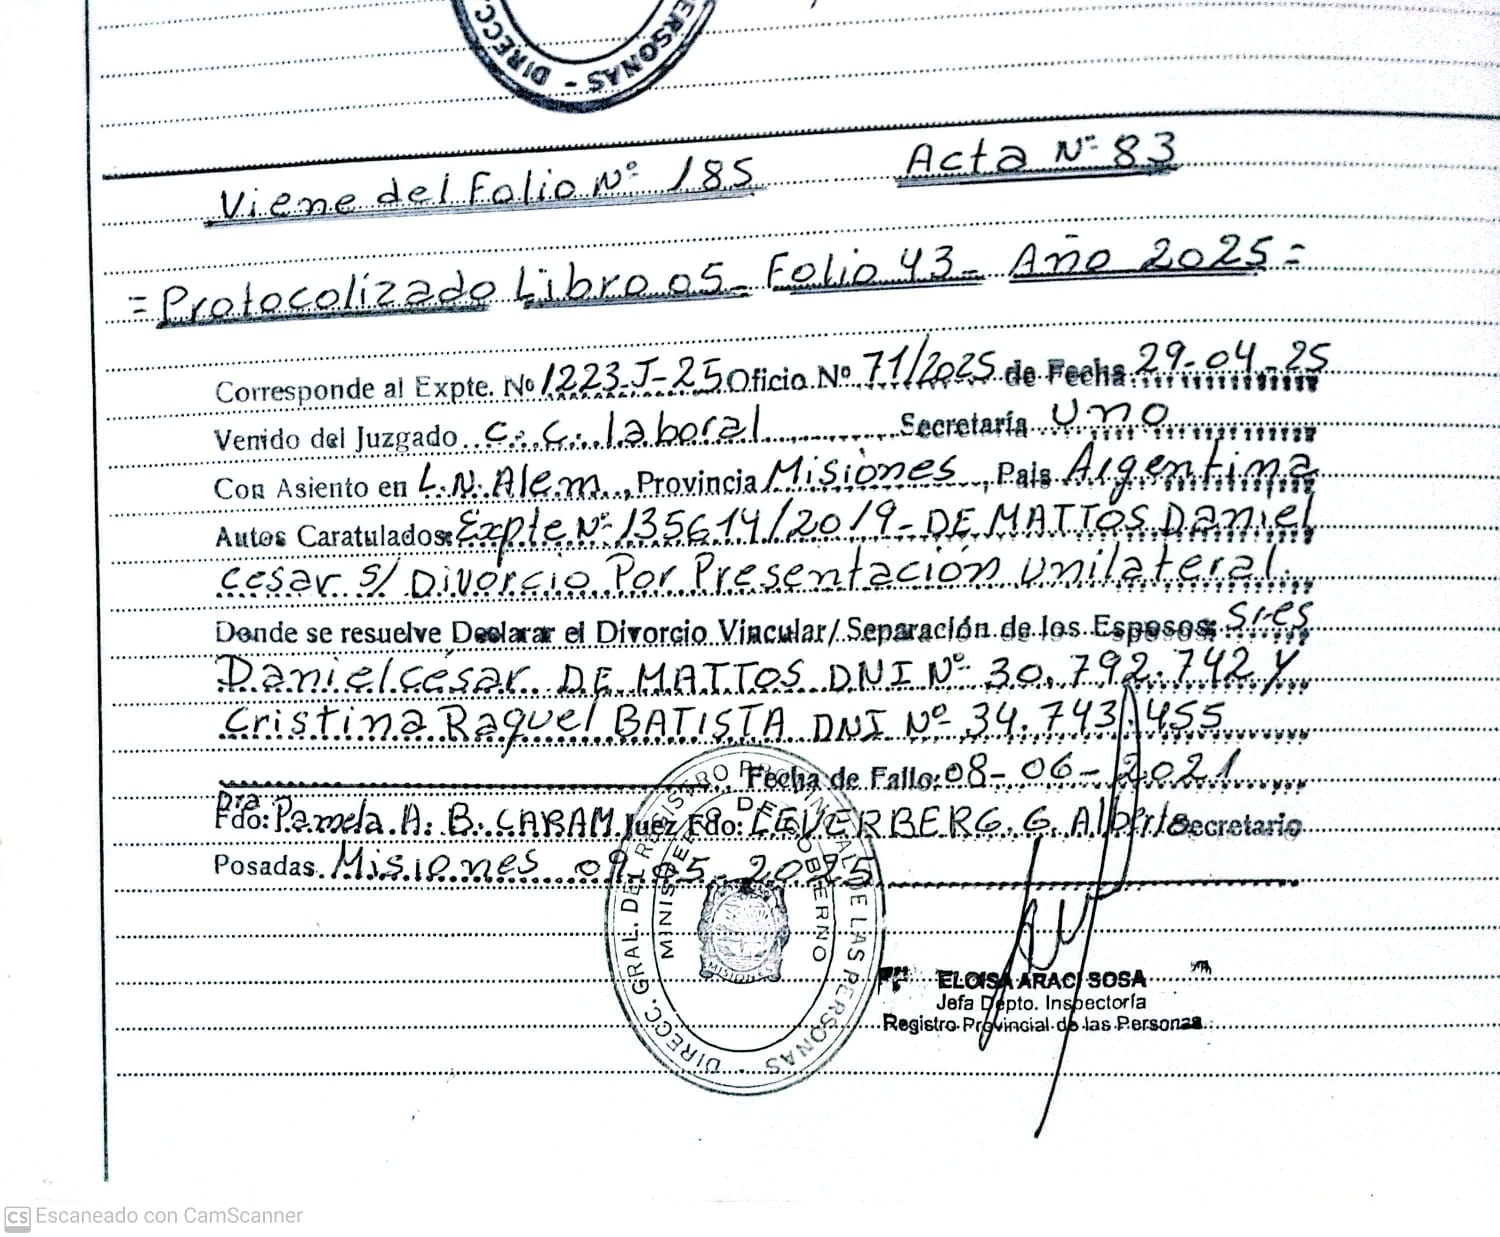 DIRECC. PERSONAS -
Viene del Folio Nº 185 Acta Nº 83
= Protocolizado Libro 05 - Folio 43 - Año 2025 =
Corresponde al Expte. Nº 1223-J-25 Oficio Nº 71/2025 de Fecha 29-04-25
Venido del Juzgado C. C. laboral Secretaría Uno
Con Asiento en L.N. Alem, Provincia Misiones, País Argentina
Autos Caratulados: Expte Nº 135614/2019- DE MATTOS Daniel
cesar s/ Divorcio Por Presentación unilateral.
Donde se resuelve Declarar el Divorcio Vincular/ Separación de los Esposos: Sres
Daniel césar DE MATTOS DNI Nº 30.792.742 y
Cristina Raquel BATISTA DNI Nº 34.743.455
Fecha de Fallo: 08-06-2021
Dra
Fdo: Pamela A. B. CARAM Juez Fdo: G. Alberto Secretario
Posadas. Misiones 09-05-2025
DIRECC. GRAL. DEL REGISTRO PROVINCIAL DE LAS PERSONAS -
MINISTERIO DE GOBIERNO
MISIONES
ELOISA ARACI SOSA
Jefa Dpto. Inspectoría
Registro Provincial de las Personas
CS Escaneado con CamScanner